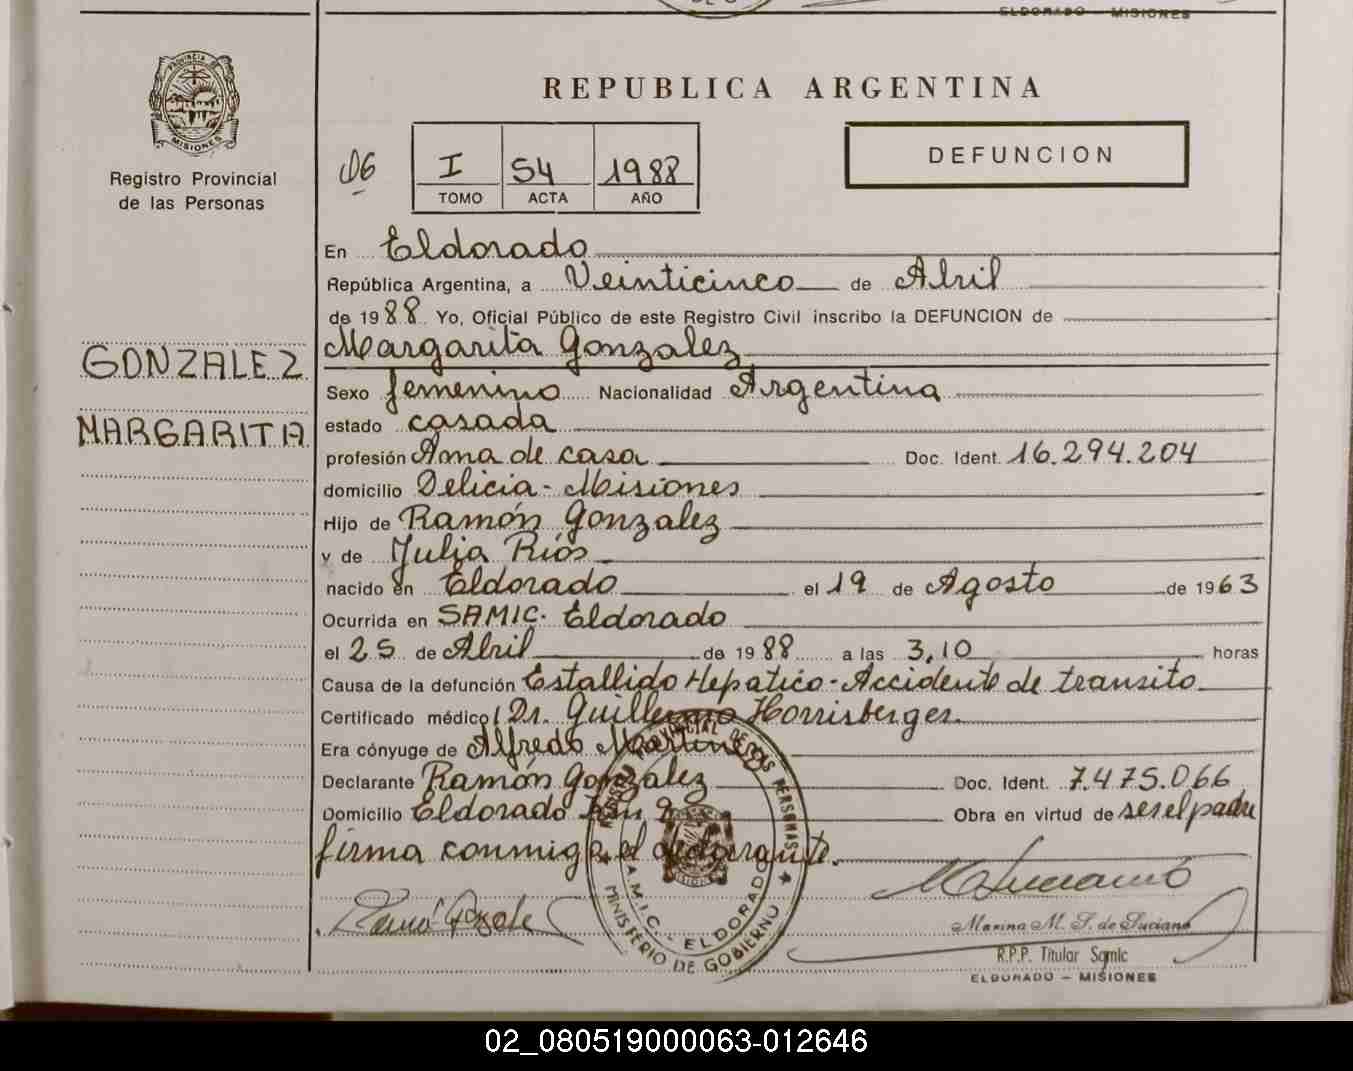 ELDORADO — MISIONES
PROVINCIA DE
MISIONES
Registro Provincial
de las Personas
REPUBLICA ARGENTINA
06
I
54
1988
TOMO
ACTA
AÑO
DEFUNCION
En Eldorado
República Argentina, a Veinticinco de Abril
de 1988 Yo, Oficial Público de este Registro Civil inscribo la DEFUNCION de
Margarita Gonzalez
GONZALEZ
MARGARITA
Sexo femenino Nacionalidad Argentina
estado casada
profesión Ama de casa Doc. Ident. 16.294.204
domicilio Delicia - Misiones
Hijo de Ramón Gonzalez
y de Julia Rios
nacido en Eldorado el 19 de Agosto de 1963
Ocurrida en SAMIC. Eldorado
el 25 de Abril de 1988 a las 3,10 horas
Causa de la defunción Estallido Hepatico - Accidente de transito
Certificado médico Dr. Guillermo Horrisberger.
Era cónyuge de Alfredo Martinez
Declarante Ramón Gonzalez Doc. Ident. 7.475.066
Domicilio Eldorado Km 9 Obra en virtud de ser el padre
firma conmigo el declarante.
PROVINCIAL DE LAS PERSONAS
S.A.M.I.C. - ELDORADO
MINISTERIO DE GOBIERNO
Marina M. S. de Luciano
R.P.P. Titular Samic
ELDORADO — MISIONES
02_080519000063-012646